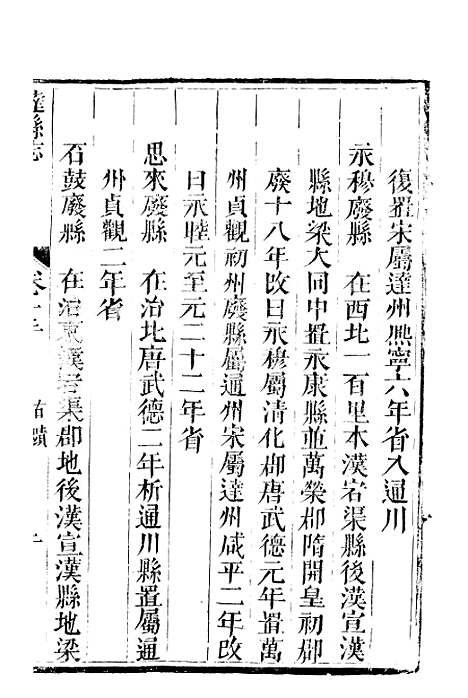 復置宋屬達州熙寧六年省入通川
永穆廢縣　在西北一百里本漢宕渠縣後漢宣漢
縣地梁大同中置永康縣並萬榮郡隋開皇初郡
廢十八年改曰永穆屬清化郡唐武德元年置萬
州貞觀初州廢縣屬通州宋屬達州咸平二年改
曰永睦元至元二十二年省
思來廢縣　在治北唐武德二年析通川縣置屬通
州貞觀二年省
石鼓廢縣　在治東漢宕渠郡地後漢宣漢縣地梁
達縣志　卷十　古蹟